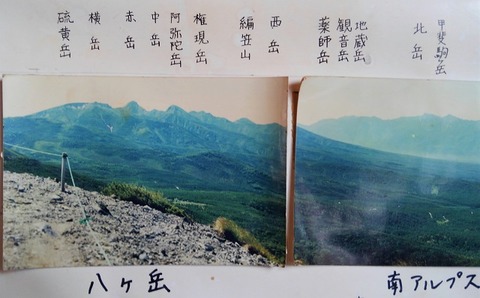 硫黄岳
横岳
赤岳
中岳
阿弥陀岳
権現岳
編笠山
西岳
薬師岳
観音岳
地蔵岳
北岳
甲斐駒ヶ岳
八ヶ岳
南アルプス